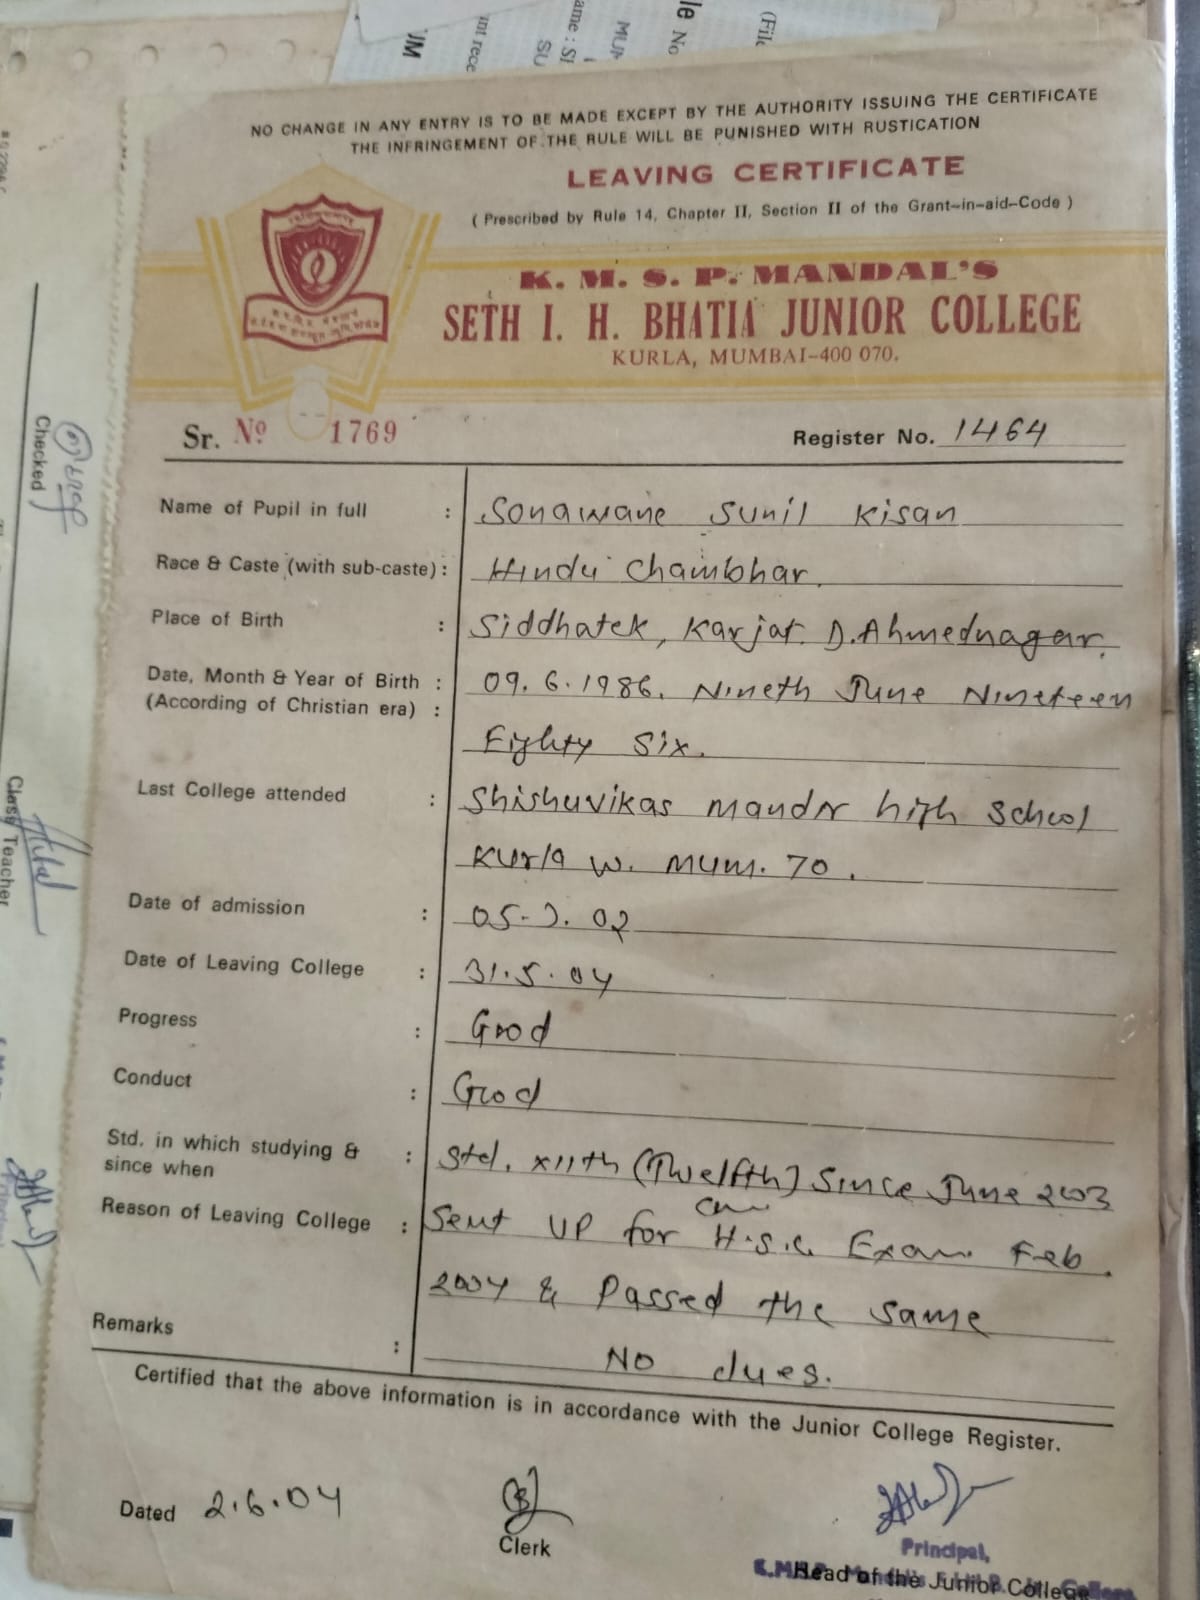 NO CHANGE IN ANY ENTRY IS TO BE MADE EXCEPT BY THE AUTHORITY ISSUING THE CERTIFICATE
THE INFRINGEMENT OF THE RULE WILL BE PUNISHED WITH RUSTICATION
LEAVING CERTIFICATE
( Prescribed by Rule 14, Chapter II, Section II of the Grant-in-aid-Code )
K. M. S. P. MANDAL'S
SETH I. H. BHATIA JUNIOR COLLEGE
KURLA, MUMBAI-400 070.
Sr. No 1769 Register No. 1464
Name of Pupil in full : Sonawane Sunil Kisan
Race & Caste (with sub-caste) : Hindu Chambhar.
Place of Birth : Siddhatek, Karjat. D. Ahmednagar.
Date, Month & Year of Birth : 09.6.1986. Nineth June Nineteen
(According of Christian era) : Eighty Six.
Last College attended : Shishuvikas Mandir high School
Kurla W. Mum. 70.
Date of admission : 05-7.02
Date of Leaving College : 31.5.04
Progress : Good
Conduct : Good
Std. in which studying & : Std. XIIth (Twelfth) Since June 2003
since when
Reason of Leaving College : Sent UP for H.S.C. Exam. Feb.
2004 & Passed the same
Remarks : No dues.
Certified that the above information is in accordance with the Junior College Register.
Dated 2.6.04
Clerk
Principal,
Head of the Junior College
Checked
Class Teacher